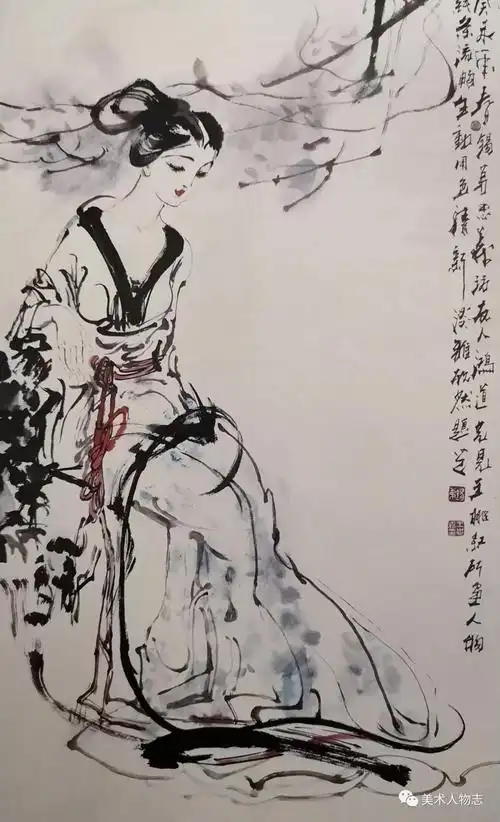 癸未年春锡访友人鸿道见王所画人物
线条流畅生动用色清新淡雅欣然题之
美术人物志